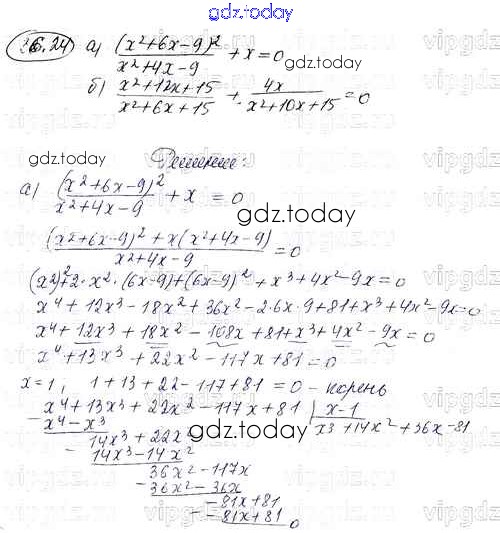 gdz.today
26.24 а) (x²+6x-9)²/(x²+4x-9) + x = 0
gdz.today
б) (x²+12x+15)/(x²+6x+15) + 4x/(x²+10x+15) = 0
gdz.today
Решение:
а) (x²+6x-9)²/(x²+4x-9) + x = 0
gdz.today
((x²+6x-9)² + x(x²+4x-9))/(x²+4x-9) = 0
(x²)²+2·x²·(6x-9)+(6x-9)²+x³+4x²-9x=0
x⁴+12x³-18x²+36x²-2·6x·9+81+x³+4x²-9x=0
x⁴+12x³+18x²-108x+81+x³+4x²-9x=0
x⁴+13x³+22x²-117x+81=0
x=1, 1+13+22-117+81=0 - корень
x⁴+13x³+22x²-117x+81 | x-1
- x⁴-x³ x³+14x²+36x-81
14x³+22x² gdz.today
- 14x³-14x²
36x²-117x
- 36x²-36x
-81x+81
- -81x+81
0
gdz.today